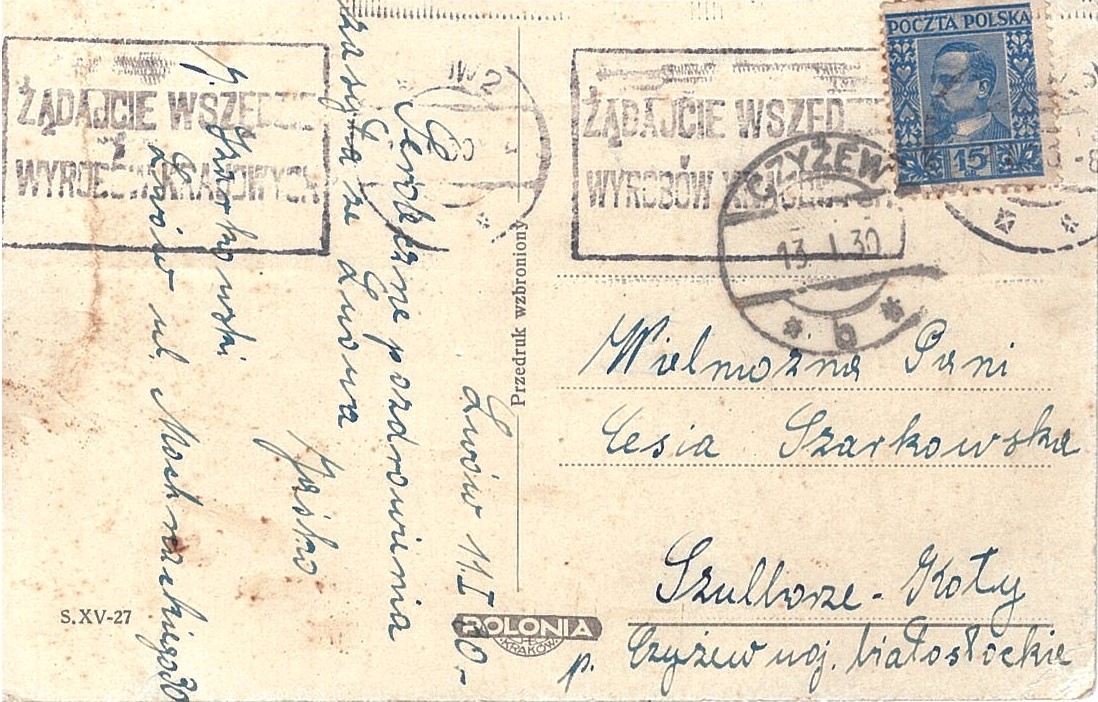 Lwów 11 I 30-
Serdeczne pozdrowienia
zasyła ze Lwowa
Jaśko
J.
Lwów ul. Mochnackiego 30
Przedruk wzbroniony
S.XV-27
POLONIA
KRAKÓW
ŻĄDAJCIE WSZĘDZIE
WYROBÓW KRAJOWYCH
ŻĄDAJCIE WSZĘDZIE
WYROBÓW KRAJOWYCH
POCZTA POLSKA
15
CZYŻEW
13. I. 30
* b *
Wielmożna Pani
Cesia Szarkowska
Szulborze - Koty
p. Czyżew woj. białostockie